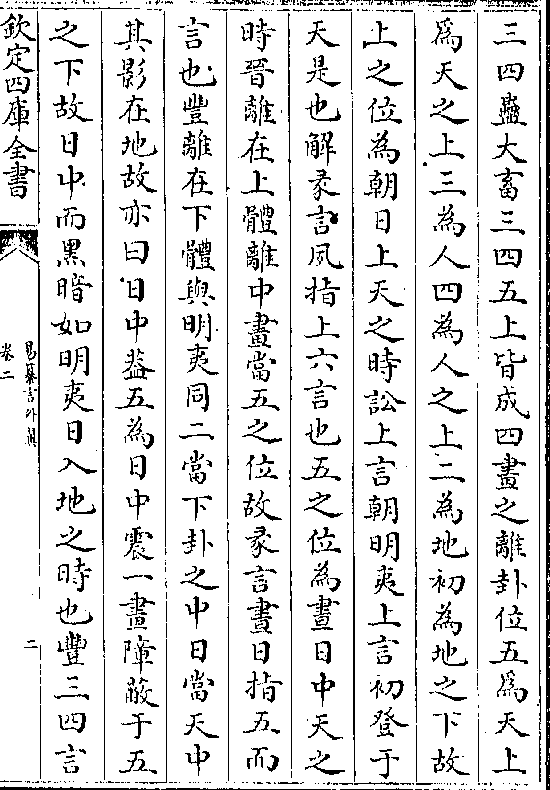 三四蠱大畜三四五上皆成四畫之離卦位五爲天上
爲天之上三為人四為人之上二為地初為地之下故
上之位為朝日上天之時訟上言朝明夷上言初登于
天是也解彖言夙指上六言也五之位為晝日中天之
時晉離在上體離中畫當五之位故彖言晝日指五而
言也豐離在下體與明夷同二當下卦之中日當天中
其影在地故亦曰日中葢五為日中震一畫障蔽于五
之下故日中而黑暗如明夷日入地之時也豐三四言
欽定四庫全書
易纂言外翼
卷二
二